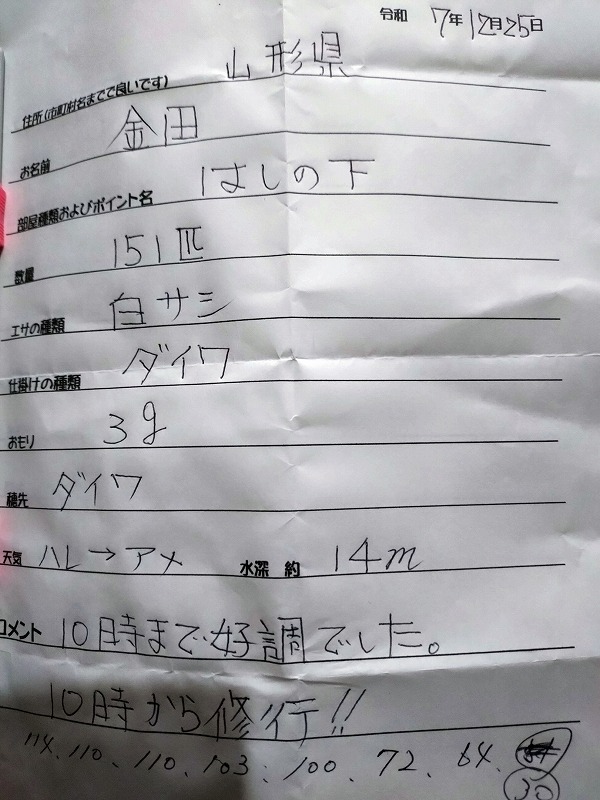 令和 7年12月25日
住所(市町村名までで良いです) 山形県
お名前 金田
部屋種類およびポイント名 はしの下
数量 151匹
エサの種類 白サシ
仕掛けの種類 ダイワ
おもり 3g
穂先 ダイワ
天気 ハレ→アメ 水深 約 14m
コメント 10時まで好調でした。
10時から修行!!
114、110、110、103、100、72、64、
30